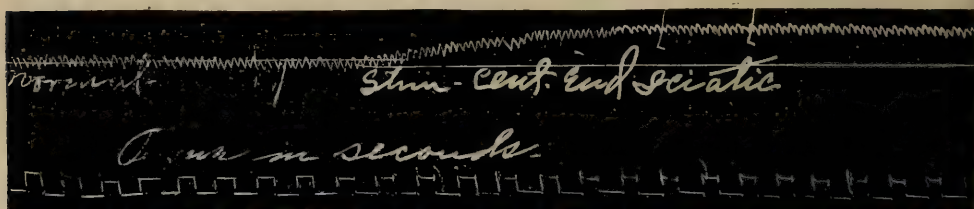 Normal Stim - Cent. End Sciatic
in seconds.